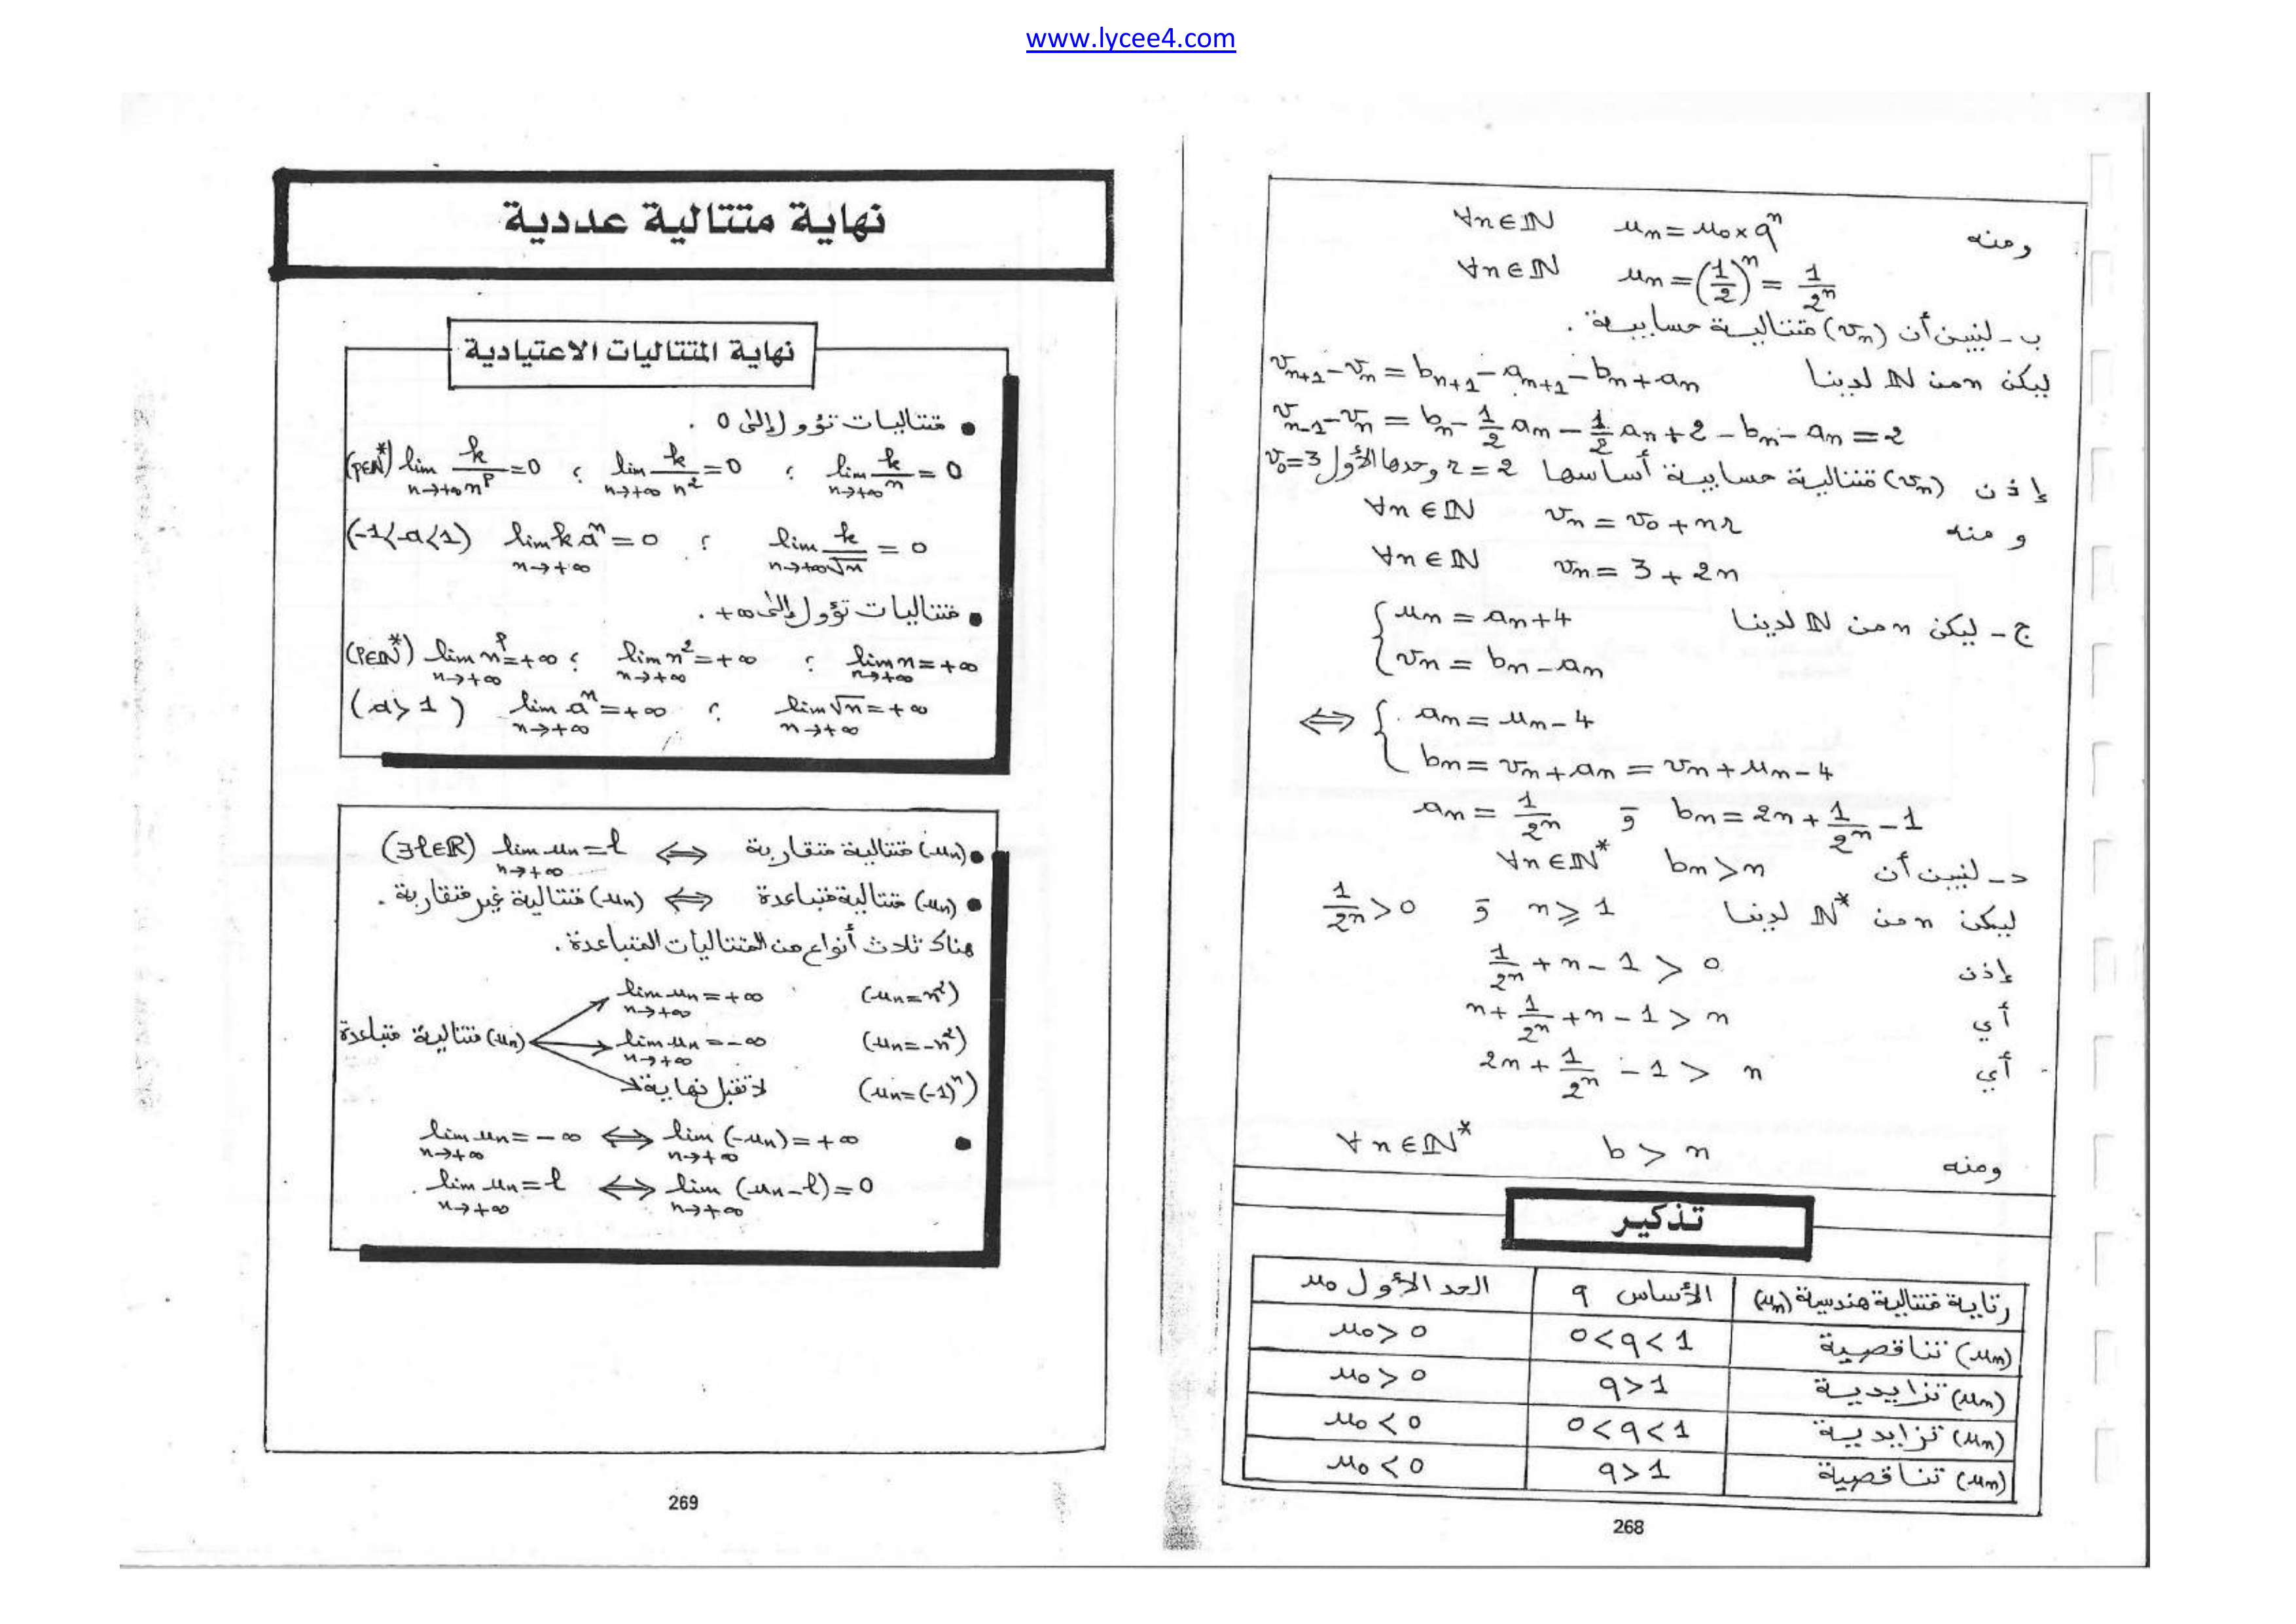 www.lycee4.com
ومنه ∀n∈ℕ uₙ = u₀ × qⁿ
∀n∈ℕ uₙ = (1/2)ⁿ = 1/2ⁿ
ب - لنبين أن (vₙ) متتالية حسابية .
ليكن n من ℕ لدينا vₙ₊₁ - vₙ = bₙ₊₁ - aₙ₊₁ - bₙ + aₙ
vₙ₋₁ - vₙ = bₙ - 1/2 aₙ - 1/2 aₙ + 2 - bₙ - aₙ = 2
إذن (vₙ) متتالية حسابية أساسها r = 2 وحدها الأول v₀ = 3
ومنه ∀n∈ℕ vₙ = v₀ + nr
∀n∈ℕ vₙ = 3 + 2n
ج - ليكن n من ℕ لدينا { uₙ = aₙ + 4
vₙ = bₙ - aₙ
⇔ { aₙ = uₙ - 4
bₙ = vₙ + aₙ = vₙ + uₙ - 4
aₙ = 1/2ⁿ و bₙ = 2n + 1/2ⁿ - 1
د - لنبين أن ∀n∈ℕ* bₙ > n
ليكن n من ℕ* لدينا n ⩾ 1 و 1/2ⁿ > 0
إذن 1/2ⁿ + n - 1 > 0
أي n + 1/2ⁿ + n - 1 > n
أي 2n + 1/2ⁿ - 1 > n
ومنه ∀n∈ℕ* b > n
تذكير
رتابة متتالية هندسية (uₙ) الأساس q الحد الأول u₀
(uₙ) تناقصية 0<q<1 u₀ > 0
(uₙ) تزايدية q>1 u₀ > 0
(uₙ) تزايدية 0<q<1 u₀ < 0
(uₙ) تناقصية q>1 u₀ < 0
268
نهاية متتالية عددية
نهاية المتتاليات الاعتيادية
• متتاليات تؤول إلى 0 .
lim n→+∞ k/n = 0 ؛ lim n→+∞ k/n² = 0 ؛ lim n→+∞ k/nᵖ = 0 (p∈ℕ*)
lim n→+∞ k/√n = 0 ؛ lim n→+∞ k aⁿ = 0 (-1<a<1)
• متتاليات تؤول إلى +∞ .
lim n→+∞ n = +∞ ؛ lim n→+∞ n² = +∞ ؛ lim n→+∞ nᵖ = +∞ (p∈ℕ*)
lim n→+∞ √n = +∞ ؛ lim n→+∞ aⁿ = +∞ (a>1)
• (uₙ) متتالية متقاربة ⇔ lim n→+∞ uₙ = ℓ (∃ℓ∈ℝ)
• (uₙ) متتالية متباعدة ⇔ (uₙ) متتالية غير متقاربة .
هناك ثلاث أنواع من المتتاليات المتباعدة .
lim n→+∞ uₙ = +∞ (uₙ = n²)
(uₙ) متتالية متباعدة lim n→+∞ uₙ = -∞ (uₙ = -n²)
لا تقبل نهاية (uₙ = (-1)ⁿ)
• lim n→+∞ uₙ = -∞ ⇔ lim n→+∞ (-uₙ) = +∞
lim n→+∞ uₙ = ℓ ⇔ lim n→+∞ (uₙ - ℓ) = 0
269